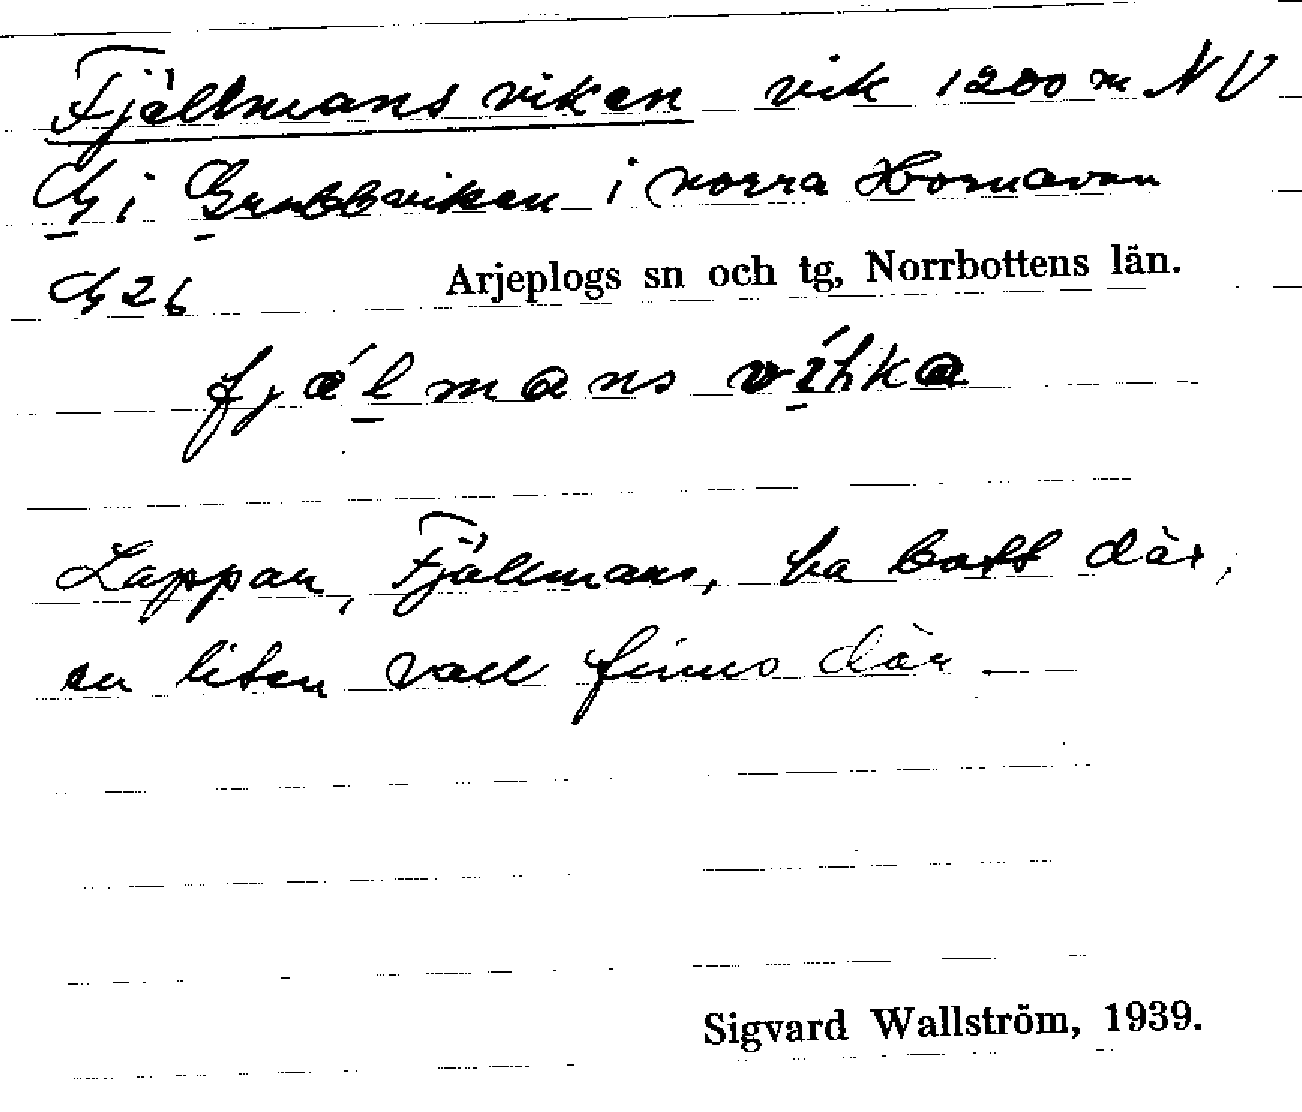 Fjällmansviken vik 1200 m NV
G i Grubbviken i norra Hornavan
G 26 Arjeplogs sn och tg, Norrbottens län.
fjálmans víhka
Lappar, Fjällmans, ha bott där,
en liten vall finns där
Sigvard Wallström, 1939.